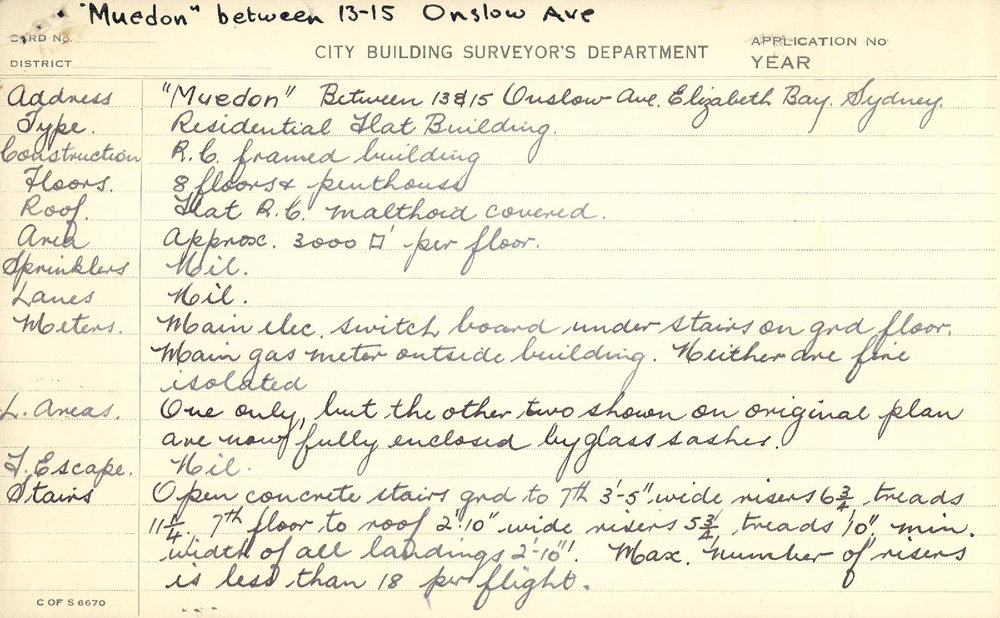 "Muedon" between 13-15 Onslow Ave
CARD No.
CITY BUILDING SURVEYOR'S DEPARTMENT
APPLICATION No
DISTRICT
YEAR
Address "Muedon" Between 13&15 Onslow Ave, Elizabeth Bay. Sydney.
Type. Residential Flat Building.
Construction R.C. framed building
Floors. 8 floors & penthouse
Roof. Flat R.C. malthoid covered.
Area Approx. 3000 □' per floor.
Sprinklers Nil.
Lanes Nil.
Meters. Main elec. switch board under stairs on grd floor.
Main gas meter outside building. Neither are fire
isolated
L. Areas. One only, but the other two shown on original plan
are now fully enclosed by glass sashes.
F. Escape. Nil.
Stairs Open concrete stairs grd to 7th 3'-5" wide risers 6 3/4 treads
11 1/4, 7th floor to roof 2'-10" wide risers 5 3/4 treads 10" min.
width of all landings 2'-10". Max. number of risers
is less than 18 per flight.
C OF S 6670